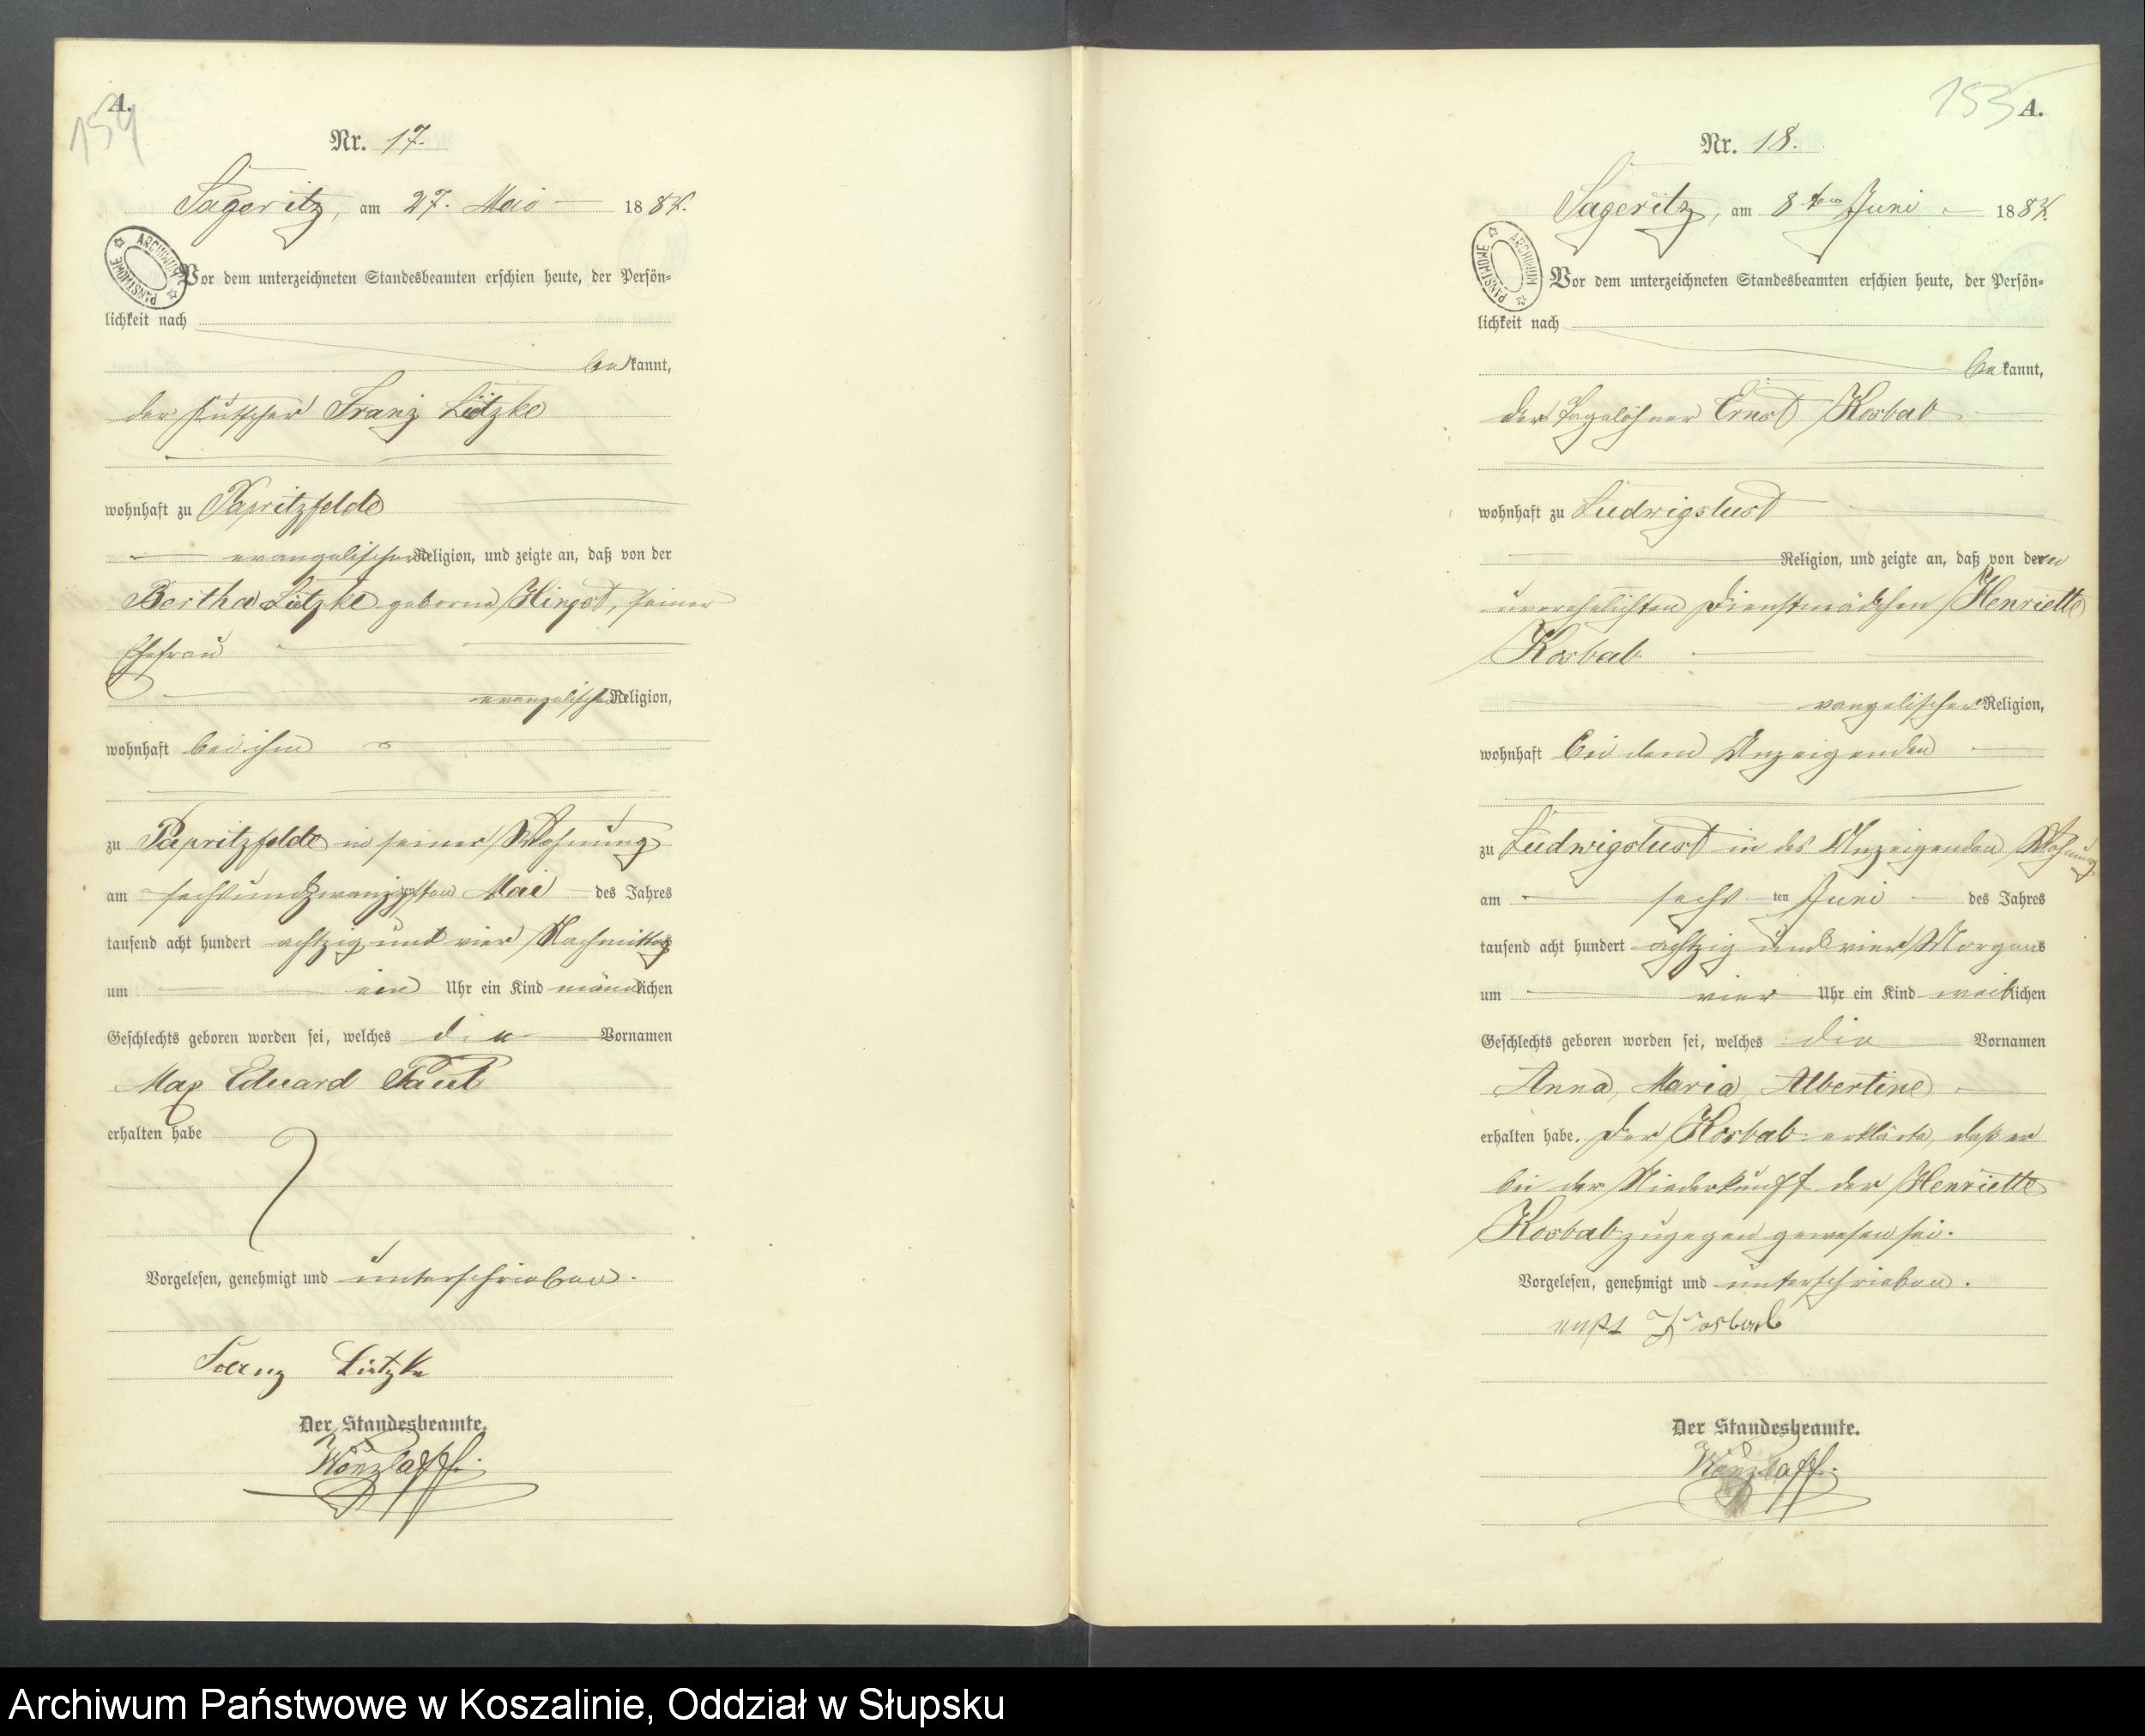 A.
154
Nr. 17.
Sageritz, am 27. Mai 1884.
ARCHIWUM PAŃSTWOWE
Vor dem unterzeichneten Standesbeamten erschien heute, der Persön-
lichkeit nach
bekannt,
der Kutscher Franz Lützke
wohnhaft zu Papritzfelde
evangelischer Religion, und zeigte an, daß von der
Bertha Lützke geborne Hingst, seiner
Ehefrau
evangelischer Religion,
wohnhaft bei ihm
zu Papritzfelde in seiner Wohnung
am sechsundzwanzigsten Mai des Jahres
tausend acht hundert achtzig und vier Nachmittags
um ein Uhr ein Kind männlichen
Geschlechts geboren worden sei, welches die Vornamen
Max Eduard Paul
erhalten habe
Vorgelesen, genehmigt und unterschrieben.
Franz Lützke
Der Standesbeamte.
153 A.
Nr. 18.
Sageritz, am 8ten Juni 1884.
ARCHIWUM PAŃSTWOWE
Vor dem unterzeichneten Standesbeamten erschien heute, der Persön-
lichkeit nach
bekannt,
der Tagelöhner Ernst Kosbab
wohnhaft zu Ludwigslust
Religion, und zeigte an, daß von der
unverehelichten Dienstmädchen Henriette
Kosbab
evangelischer Religion,
wohnhaft bei dem Anzeigenden
zu Ludwigslust in des Anzeigenden Wohnung
am sechsten Juni des Jahres
tausend acht hundert achtzig und vier Morgens
um vier Uhr ein Kind weiblichen
Geschlechts geboren worden sei, welches die Vornamen
Anna, Maria, Albertine
erhalten habe. Der Kosbab erklärte, daß er
bei der Niederkunft der Henriette
Kosbab zugegen gewesen sei.
Vorgelesen, genehmigt und unterschrieben.
Kosbab
Der Standesbeamte.
Archiwum Państwowe w Koszalinie, Oddział w Słupsku